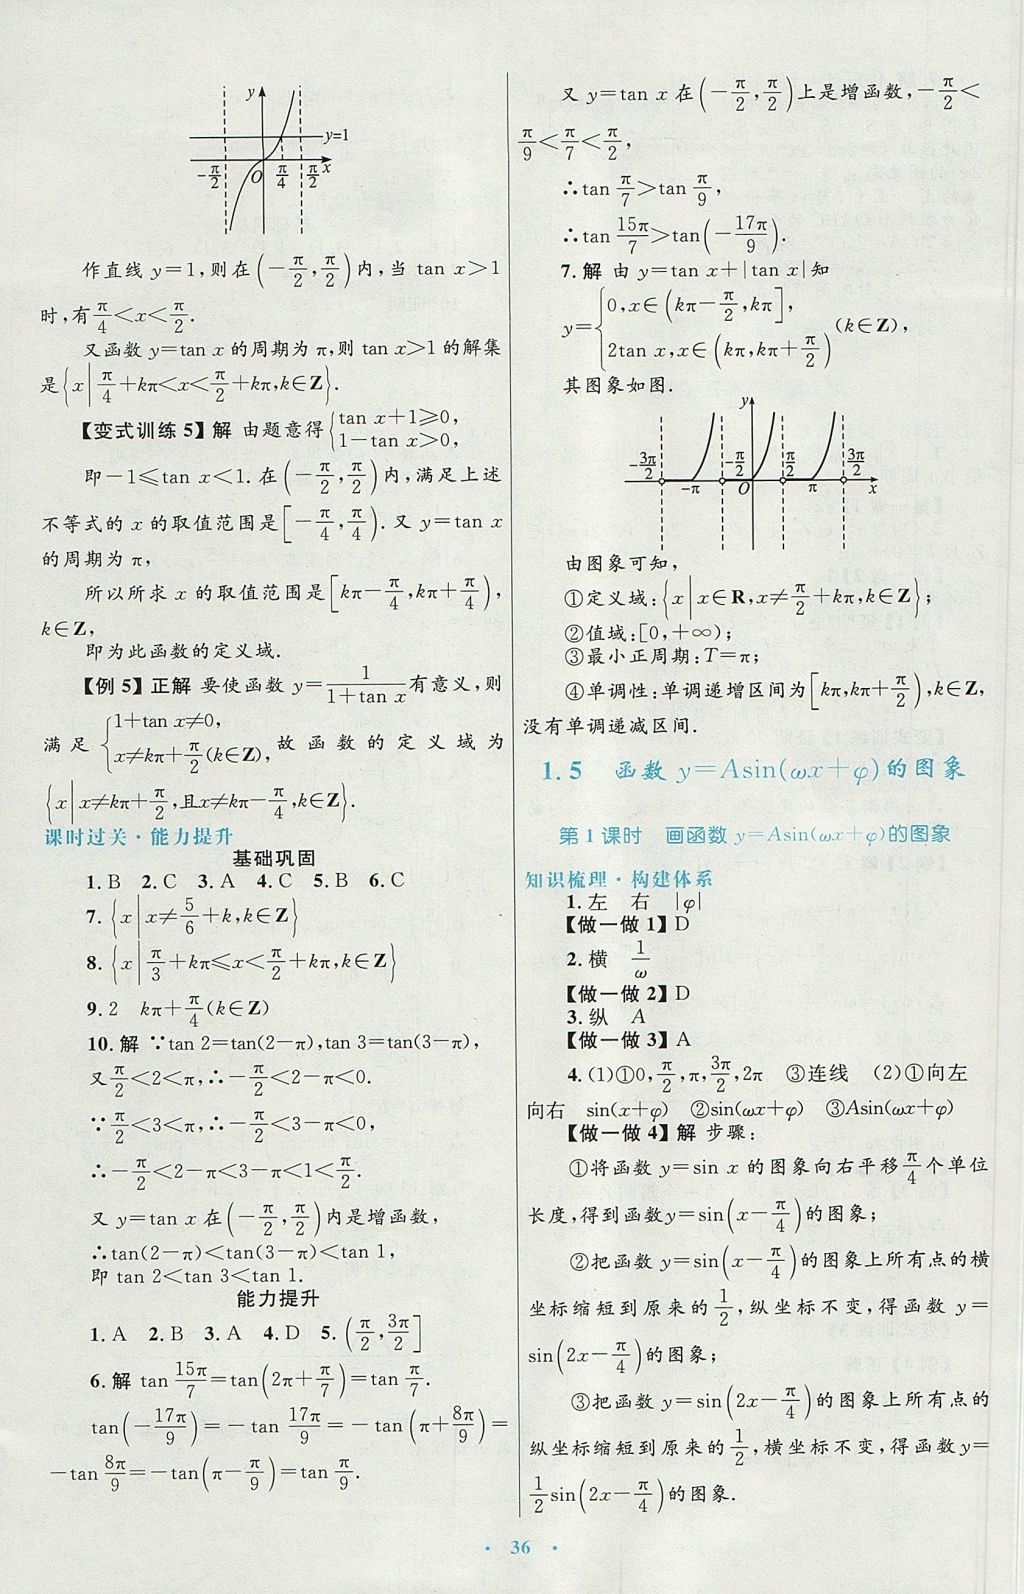 y
y=1
-π/2 O π/4 π/2 x
作直线 y=1,则在(-π/2,π/2)内,当 tan x>1
时,有π/4<x<π/2.
又函数 y=tan x 的周期为 π,则 tan x>1 的解集
是{x|π/4+kπ<x<π/2+kπ,k∈Z}.
【变式训练 5】解 由题意得{tan x+1≥0, 1-tan x>0,
即-1≤tan x<1.在(-π/2,π/2)内,满足上述
不等式的 x 的取值范围是[-π/4,π/4).又 y=tan x
的周期为 π,
所以所求 x 的取值范围是[kπ-π/4,kπ+π/4),
k∈Z,
即为此函数的定义域.
【例 5】正解 要使函数 y=1/(1+tan x)有意义,则
满足{1+tan x≠0, x≠kπ+π/2(k∈Z),故函数的定义域为
{x|x≠kπ+π/2,且x≠kπ-π/4,k∈Z}.
课时过关·能力提升
基础巩固
1.B 2.C 3.A 4.C 5.B 6.C
7.{x|x≠5/6+k,k∈Z}
8.{x|π/3+kπ≤x<π/2+kπ,k∈Z}
9.2 kπ+π/4(k∈Z)
10.解 ∵tan 2=tan(2-π),tan 3=tan(3-π),
又π/2<2<π,∴-π/2<2-π<0.
∵π/2<3<π,∴-π/2<3-π<0,
∴-π/2<2-π<3-π<1<π/2.
又 y=tan x 在(-π/2,π/2)内是增函数,
∴tan(2-π)<tan(3-π)<tan 1,
即 tan 2<tan 3<tan 1.
能力提升
1.A 2.B 3.A 4.D 5.(π/2,3π/2]
6.解 tan 15π/7=tan(2π+π/7)=tan π/7.
tan(-17π/9)=-tan 17π/9=-tan(π+8π/9)=
-tan 8π/9=-tan(π-π/9)=tan π/9.
又 y=tan x 在(-π/2,π/2)上是增函数,-π/2<
π/9<π/7<π/2,
∴tan π/7>tan π/9,
∴tan 15π/7>tan(-17π/9).
7.解 由 y=tan x+|tan x|知
y={0,x∈(kπ-π/2,kπ], 2tan x,x∈(kπ,kπ+π/2) (k∈Z),
其图象如图.
y
-3π/2 -π -π/2 O π/2 π 3π/2 x
由图象可知,
①定义域:{x|x∈R,x≠π/2+kπ,k∈Z};
②值域:[0,+∞);
③最小正周期:T=π;
④单调性:单调递增区间为[kπ,kπ+π/2),k∈Z,
没有单调递减区间.
1.5 函数 y=Asin(ωx+φ)的图象
第 1 课时 画函数 y=Asin(ωx+φ)的图象
知识梳理·构建体系
1.左 右 |φ|
【做一做 1】D
2.横 1/ω
【做一做 2】D
3.纵 A
【做一做 3】A
4.(1)①0,π/2,π,3π/2,2π ③连线 (2)①向左
向右 sin(x+φ) ②sin(ωx+φ) ③Asin(ωx+φ)
【做一做 4】解 步骤:
①将函数 y=sin x 的图象向右平移π/4个单位
长度,得到函数y=sin(x-π/4)的图象;
②把函数 y=sin(x-π/4)的图象上所有点的横
坐标缩短到原来的1/2,纵坐标不变,得函数 y=
sin(2x-π/4)的图象;
③把函数 y=sin(2x-π/4)的图象上所有点的
纵坐标缩短到原来的1/2,横坐标不变,得函数y=
1/2sin(2x-π/4)的图象.
· 36 ·